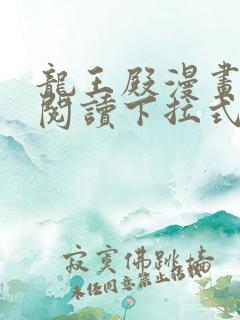 龍王殿漫畫
閱讀下拉式
寂寞佛跳墻
未经同意禁止转载